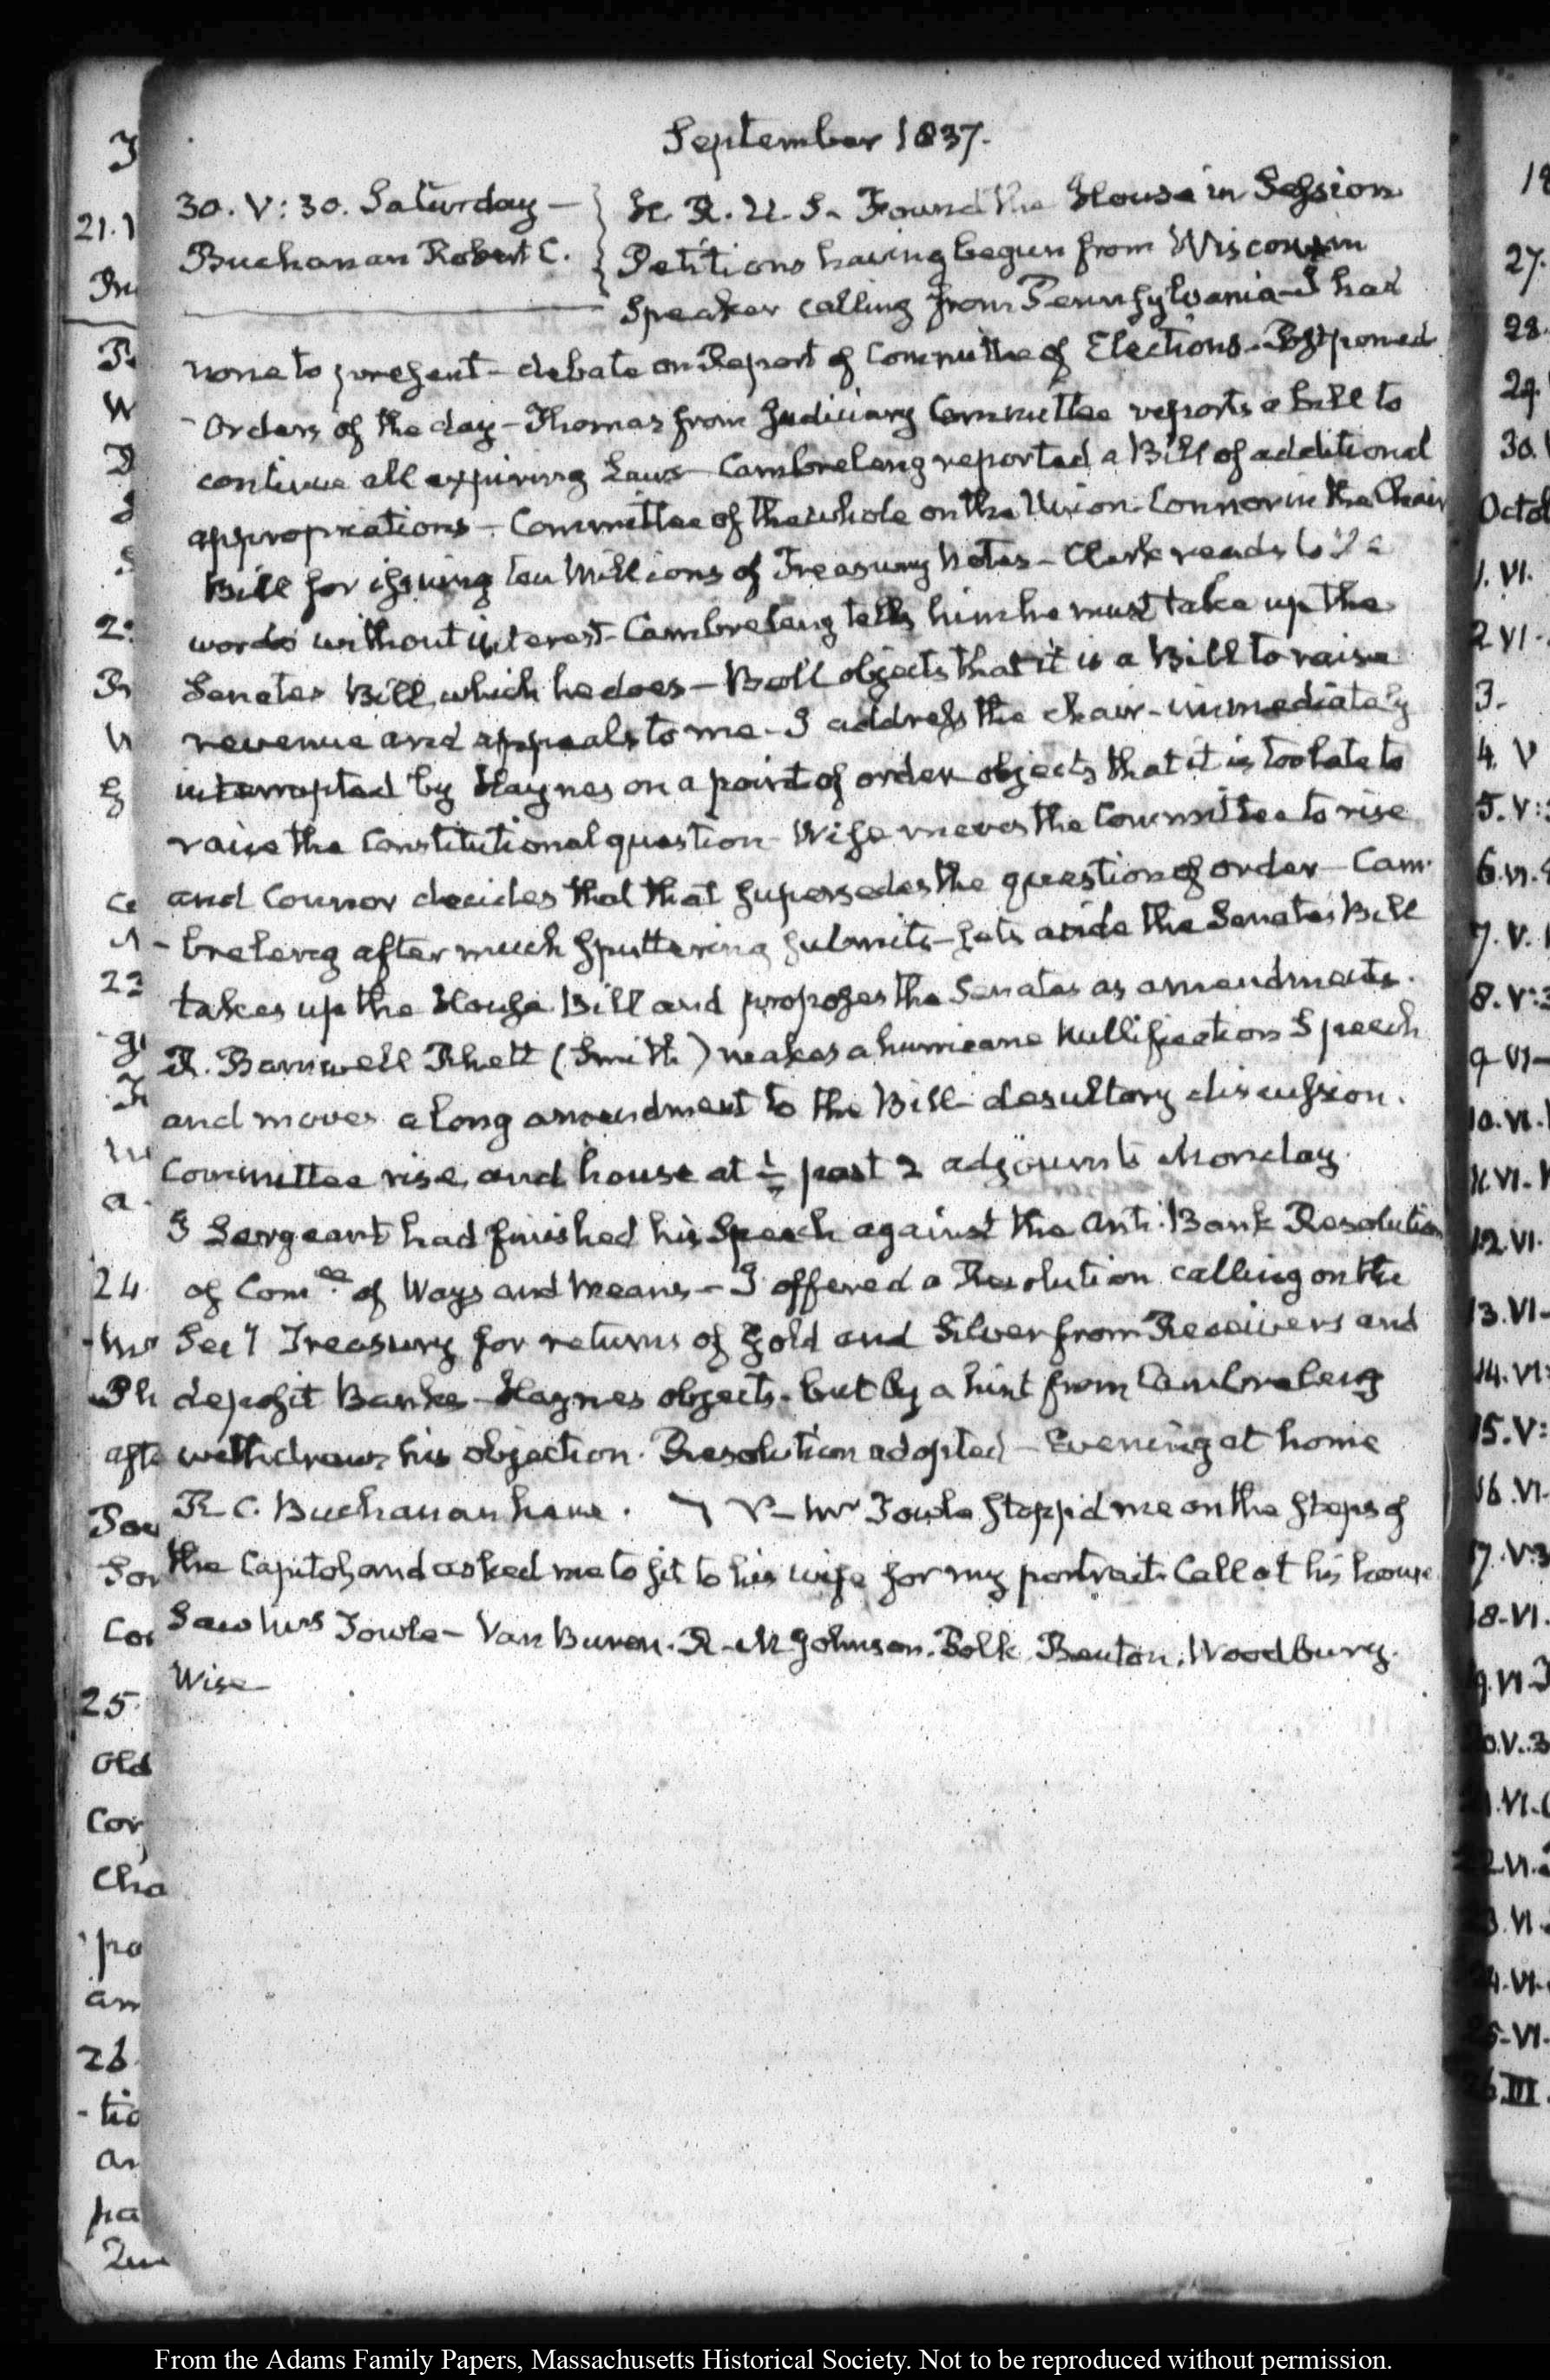 September 1837.
30. V: 30. Saturday —
Buchanan Robert C.
H. R. U. S. Found the House in Session
Petitions having begun from Wisconsin
Speaker calling from Pennsylvania — I had
none to present — debate on Report of Committee of Elections — Postponed
- Orders of the day — Thomas from Judiciary Committee reports a bill to
continue all expiring Laws — Cambreleng reported a Bill of additional
appropriations — Committee of the whole on the Union — Connor in the Chair
Bill for issuing ten Millions of Treasury Notes — Clerk reads to
words without interest — Cambreleng tells him he must take up the
Senates Bill, which he does — Bell objects that it is a Bill to raise
revenue and appeals to me — I address the chair — immediately
interrupted by Haynes on a point of order objects that it is too late to
raise the Constitutional question — Wise moves the Committee to rise
and Connor decides that that supersedes the question of order — Cam-
- breleng after much sputtering submits — sets aside the Senates Bill
takes up the House Bill and proposes the Senates as amendments.
R. Barnwell Rhett (Smith) makes a hurricane Nullification Speech
and moves a long amendment to the Bill — desultory discussion.
Committee rise, and house at ½ past 2 adjourn to Monday.
J Sergeant had finished his Speech against the Anti-Bank Resolution
of Com.ee of Ways and Means — I offered a Resolution calling on the
Sec'y Treasury for returns of Gold and Silver from Receivers and
deposit Banks — Haynes objects — but by a hint from Cambreleng
withdraws his objection. Resolution adopted — Evening at home
R. C. Buchanan here. V — Mr Fowle stopp'd me on the steps of
the Capitol, and asked me to sit to his wife for my portrait. Call at his house
Saw Mrs Fowle — Van Buren. R. M Johnson. Polk. Benton. Woodbury.
Wise —
21.
24
afte
25
old
Cor
Cha
pa
an
26.
- tio
an
pa
27.
28.
29.
30.
Octob
1. VI.
2 VI.
3.
4. V
5. V:
6. VI.
7. V.
8. V:3
9 VI —
10. VI.
11. VI.
12. VI.
13. VI —
14. VI:
15. V:
16. VI.
17. V:3
18 - VI.
From the Adams Family Papers, Massachusetts Historical Society. Not to be reproduced without permission.